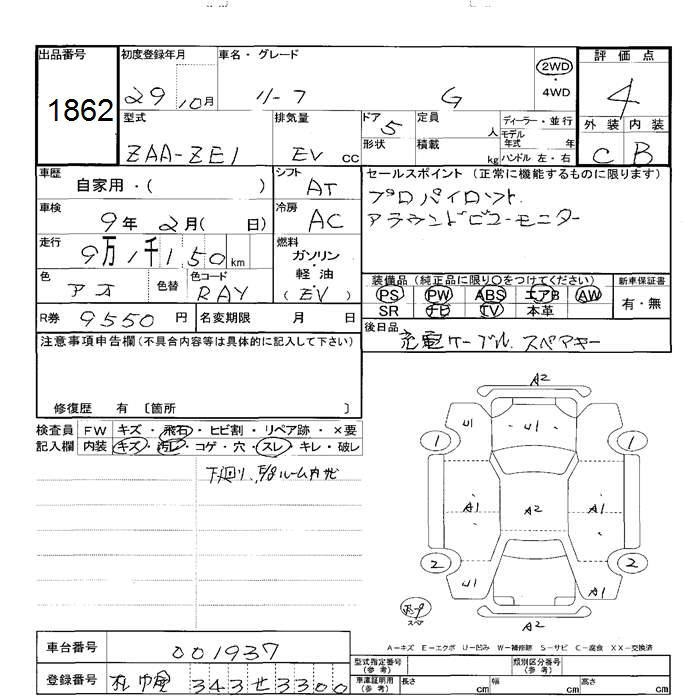 出品番号 初度登録年月 車名・グレード 2WD ・ 4WD 評価点
1862 29 10月 リーフ G 4
型式 排気量 ドア 5 定員 人 ディーラー・並行 外装 内装
形状 積載 kg モデル年式 年 ハンドル 左・右
ZAA-ZE1 EV CC C B
車歴 自家用・( ) シフト AT セールスポイント (正常に機能するものに限ります)
車検 9年 2月( 日) 冷房 AC プロパイロット.
アラウンドビューモニター
走行 9万 1千 150 km 燃料 ガソリン・軽油 (EV)
色 アオ 色替 色コード RAY
装備品 (純正品に限り○をつけてください) 新車保証書
PS PW ABS エアB AW 有・無
SR ナビ TV 本革
R券 9550円 名変期限 月 日 後日品
充電ケーブル. スペアキー
注意事項申告欄(不具合内容等は具体的に記入して下さい)
修復歴 有 〔箇所 〕
検査員 FW キズ・飛石・ヒビ割・リペア跡・×要
記入欄 内装 キズ・汚レ・コゲ・穴・スレ・キレ・破レ
下廻り、E/Gルーム内サビ
A2
U1 U1
1 1
A1 A2 A1
2 2
U1 A1
スペア
A2
A-キズ E-エクボ U-凹み W-補修跡 S-サビ C-腐食 XX-交換済
車台番号 001937 型式指定番号 (参考) 類別区分番号 (参考)
登録番号 札幌 343 せ 3300 車庫証明用 (参考) 長さ cm 幅 cm 高さ cm